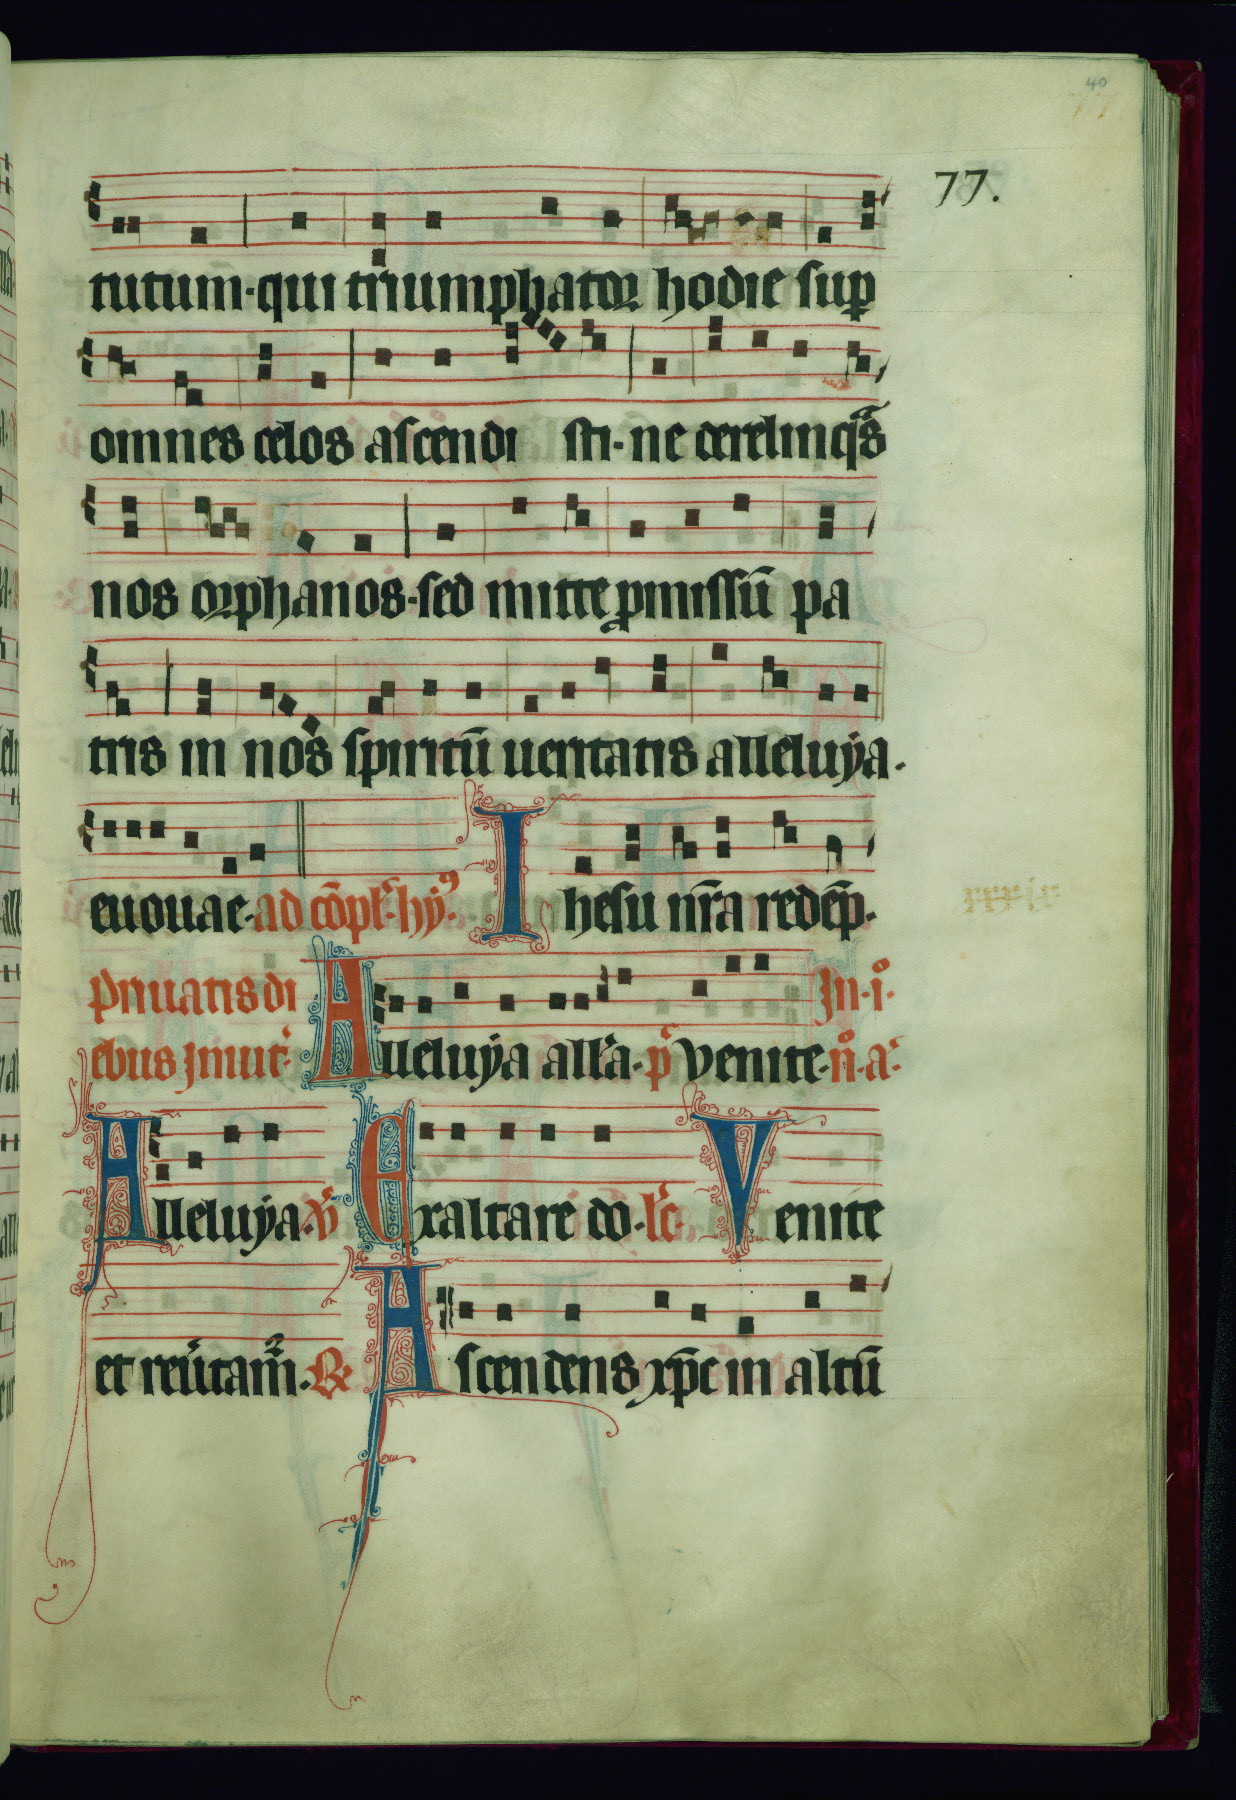 40
77.
tutum·qui triumphator hodie sup̲
omnes celos ascendi sti·ne derelinq͛s
nos orphanos·sed mitte ꝓmissū pa
tris in nos spiritū ueritatis alleluÿa·
euouae·ad cōpl̓·hy᷒· Ihesu nr̄a redēp·
Priuatis di In·i°·
ebus Inuit̓· Alleluÿa all̓a·p̓ venite·n°·a̓·
Alleluÿa·v̓ Exaltare do·lc̓· Venite
et reu̓tam̓·℟ Ascendens xp̄c in altū